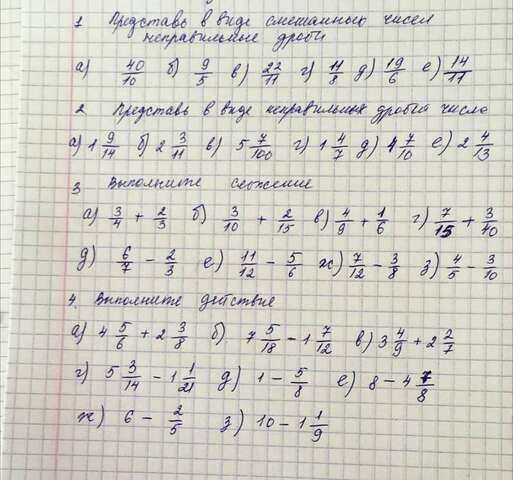 1 Представь в виде смешанных чисел
неправильные дроби
а) 40/10 б) 9/5 в) 22/11 г) 11/8 д) 19/6 е) 14/11
2 Представь в виде неправильных дробей число
а) 1 9/14 б) 2 3/11 в) 5 7/100 г) 1 4/7 д) 4 7/10 е) 2 4/13
3 Выполните сложение
а) 3/4 + 2/3 б) 3/10 + 2/15 в) 4/9 + 1/6 г) 7/15 + 3/40
д) 6/7 - 2/3 е) 11/12 - 5/6 ж) 7/12 - 3/8 з) 4/5 - 3/10
4. Выполните действие
а) 4 5/6 + 2 3/8 б) 7 5/18 - 1 7/12 в) 3 4/9 + 2 2/7
г) 5 3/14 - 1 1/21 д) 1 - 5/8 е) 8 - 4 7/8
ж) 6 - 2/5 з) 10 - 1 1/9